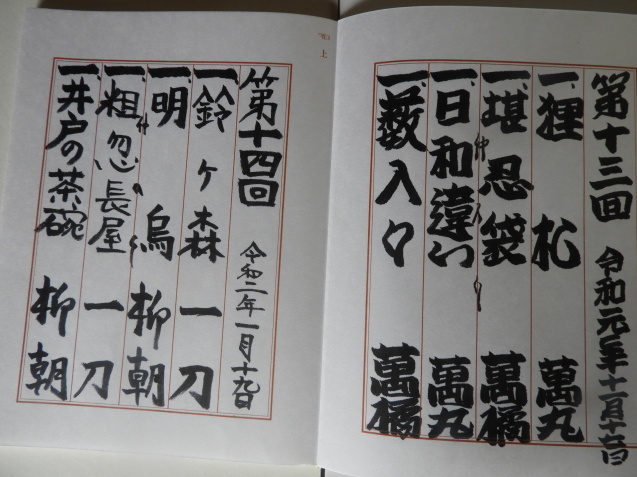 第十三回 令和元年十一月十七日
一、狸札 萬丸
一、堪忍袋 萬橘
仲入り
一、日和違い 萬丸
一、薮入り 萬橘
第十四回 令和二年一月十九日
一、鈴ヶ森 一刀
一、明烏 柳朝
一、粗忽長屋 一刀
一、井戸の茶碗 柳朝
上